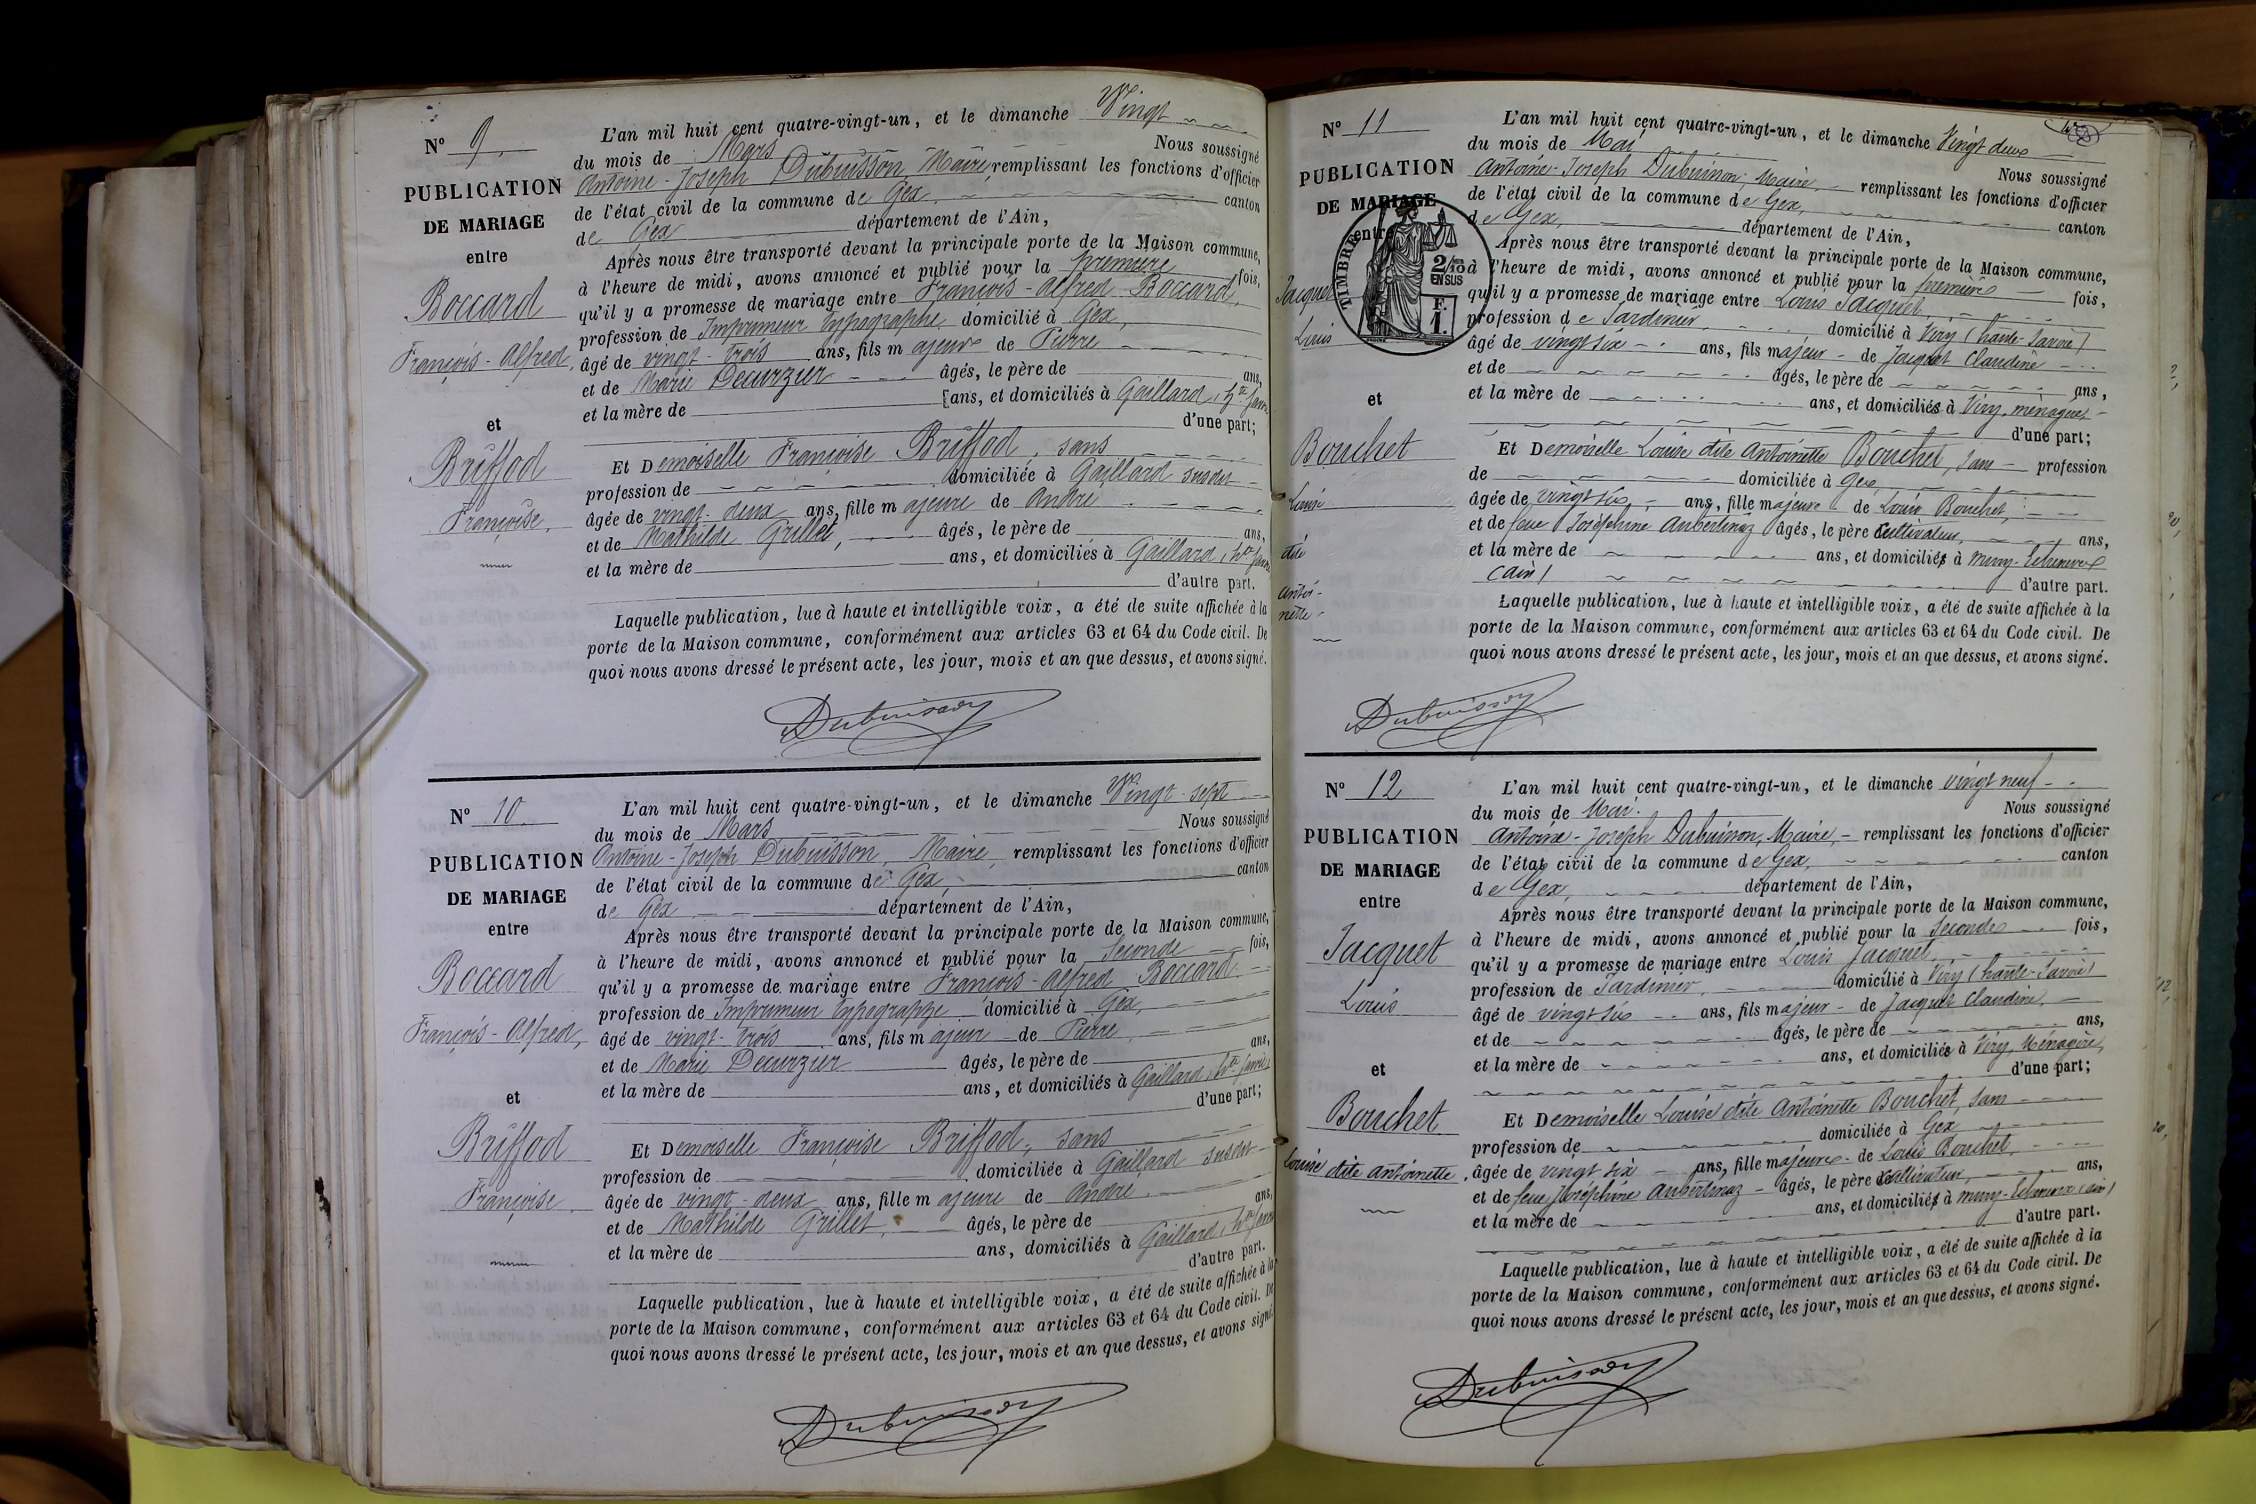 N° 9.
PUBLICATION
DE MARIAGE
entre
Boccard
François-Alfred,
et
Briffod
Françoise.
L'an mil huit cent quatre-vingt-un, et le dimanche Vingt
du mois de Mars Nous soussigné
Antoine-Joseph Dubuisson, Maire, remplissant les fonctions d'officier
de l'état civil de la commune de Gex, canton
de Gex département de l'Ain,
Après nous être transporté devant la principale porte de la Maison commune,
à l'heure de midi, avons annoncé et publié pour la première fois,
qu'il y a promesse de mariage entre François-Alfred Boccard,
profession de Imprimeur typographe, domicilié à Gex,
âgé de vingt-trois ans, fils majeur de Pierre
et de Marie Decurzier âgés, le père de ans,
et la mère de [ans, et domiciliés à Gaillard, hte Savoie
d'une part;
ET Demoiselle Françoise Briffod, sans
profession de domiciliée à Gaillard susdit
âgée de vingt-deux ans, fille majeure de André
et de Mathilde Grillet, âgés, le père de ans,
et la mère de ans, et domiciliés à Gaillard, hte Savoie
d'autre part.
Laquelle publication, lue à haute et intelligible voix, a été de suite affichée à la
porte de la Maison commune, conformément aux articles 63 et 64 du Code civil. De
quoi nous avons dressé le présent acte, les jour, mois et an que dessus, et avons signé.
Dubuisson
N° 10.
PUBLICATION
DE MARIAGE
entre
Boccard
François-Alfred,
et
Briffod
Françoise.
L'an mil huit cent quatre-vingt-un, et le dimanche Vingt-sept
du mois de Mars Nous soussigné
Antoine-Joseph Dubuisson, Maire, remplissant les fonctions d'officier
de l'état civil de la commune de Gex, canton
de Gex département de l'Ain,
Après nous être transporté devant la principale porte de la Maison commune,
à l'heure de midi, avons annoncé et publié pour la seconde fois,
qu'il y a promesse de mariage entre François-Alfred Boccard
profession de Imprimeur typographe domicilié à Gex,
âgé de vingt-trois ans, fils majeur de Pierre
et de Marie Decurzier âgés, le père de ans,
et la mère de ans, et domiciliés à Gaillard, hte Savoie
d'une part;
ET Demoiselle Françoise Briffod, sans
profession de domiciliée à Gaillard susdit
âgée de vingt-deux ans, fille majeure de André
et de Mathilde Grillet, âgés, le père de ans,
et la mère de ans, domiciliés à Gaillard, hte Savoie
d'autre part.
Laquelle publication, lue à haute et intelligible voix, a été de suite affichée à la
porte de la Maison commune, conformément aux articles 63 et 64 du Code civil. De
quoi nous avons dressé le présent acte, les jour, mois et an que dessus, et avons signé.
Dubuisson
N° 11
PUBLICATION
DE MARIAGE
entre
TIMBRE
2/10
EN SUS
F.
1.
Jacquet
Louis
et
Bouchet
Louise
dite
Antoi-
nette
L'an mil huit cent quatre-vingt-un, et le dimanche Vingt deux
du mois de Mai Nous soussigné
Antoine-Joseph Dubuisson, Maire, remplissant les fonctions d'officier
de l'état civil de la commune de Gex, canton
de Gex, département de l'Ain,
Après nous être transporté devant la principale porte de la Maison commune,
à l'heure de midi, avons annoncé et publié pour la première fois,
qu'il y a promesse de mariage entre Louis Jacquet,
profession de Jardinier, domicilié à Viry (haute-Savoie)
âgé de vingt six ans, fils majeur de Jacquet Claudine
et de âgés, le père de ans,
et la mère de ans, et domiciliés à Viry, ménagère,
d'une part;
ET Demoiselle Louise dite Antoinette Bouchet, sans profession
de domiciliée à Gex
âgée de vingt six, ans, fille majeure de Louis Bouchet,
et de feue Joséphine Aubertinaz âgés, le père cultivateur, ans,
et la mère de ans, et domiciliés à
(ain) d'autre part.
Laquelle publication, lue à haute et intelligible voix, a été de suite affichée à la
porte de la Maison commune, conformément aux articles 63 et 64 du Code civil. De
quoi nous avons dressé le présent acte, les jour, mois et an que dessus, et avons signé.
Dubuisson
N° 12
PUBLICATION
DE MARIAGE
entre
Jacquet
Louis
et
Bouchet
Louise dite Antoinette.
L'an mil huit cent quatre-vingt-un, et le dimanche vingt neuf
du mois de Mai. Nous soussigné
Antoine-Joseph Dubuisson, Maire, remplissant les fonctions d'officier
de l'état civil de la commune de Gex, canton
de Gex, département de l'Ain,
Après nous être transporté devant la principale porte de la Maison commune,
à l'heure de midi, avons annoncé et publié pour la seconde fois,
qu'il y a promesse de mariage entre Louis Jacquet,
profession de Jardinier, domicilié à Viry (haute-Savoie)
âgé de vingt six ans, fils majeur de Jacquet Claudine,
et de âgés, le père de ans,
et la mère de ans, et domiciliés à Viry, Ménagère,
d'une part;
ET Demoiselle Louise dite Antoinette Bouchet, sans
profession de domiciliée à Gex
âgée de vingt six ans, fille majeure de Louis Bouchet,
et de feue Joséphine Aubertinaz âgés, le père cultivateur, ans,
et la mère de ans, et domiciliés à (ain)
d'autre part.
Laquelle publication, lue à haute et intelligible voix, a été de suite affichée à la
porte de la Maison commune, conformément aux articles 63 et 64 du Code civil. De
quoi nous avons dressé le présent acte, les jour, mois et an que dessus, et avons signé.
Dubuisson